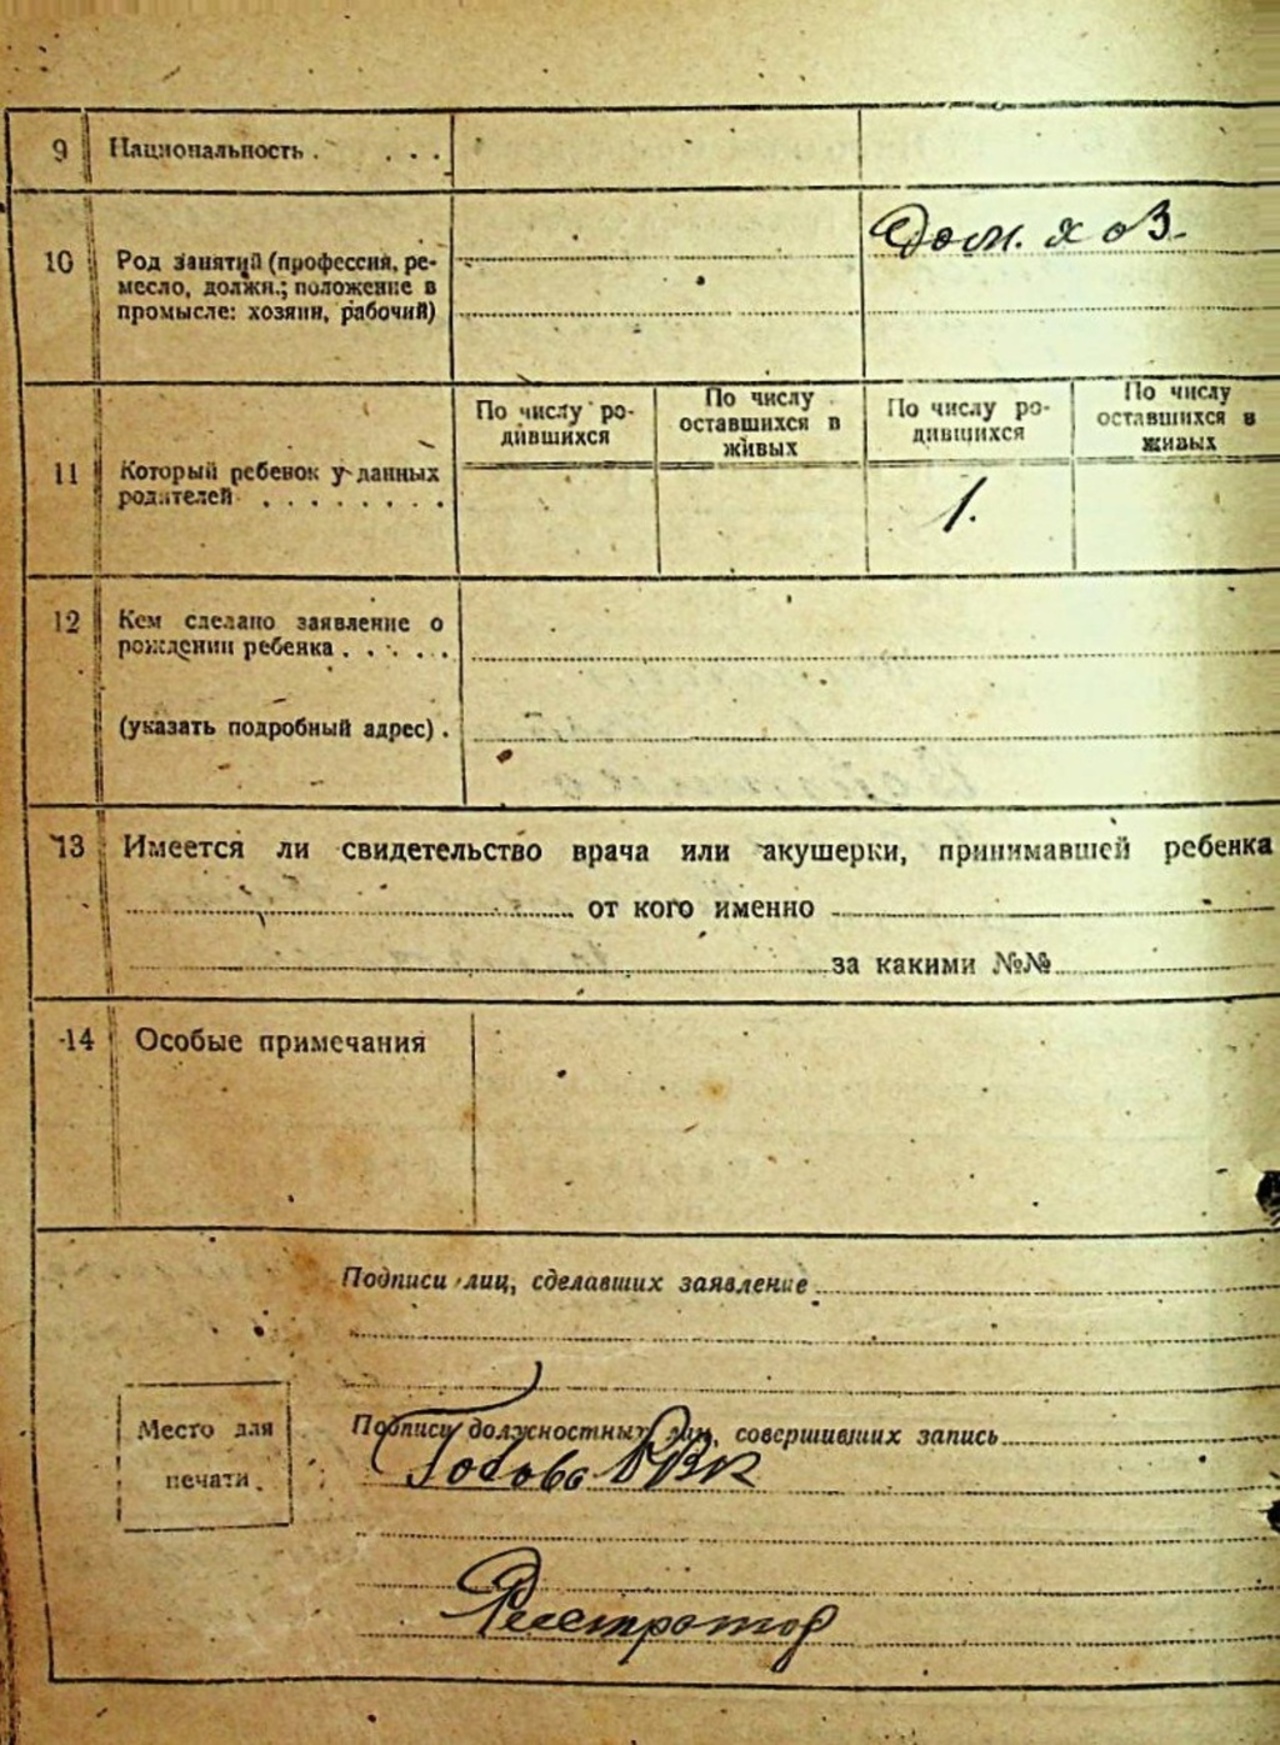 9 Национальность . . . .
Дом. хоз.
10 Род занятий (профессия, ре-
месло, должн.; положение в
промысле: хозяин, рабочий)
По числу ро-
дившихся
По числу
оставшихся в
живых
По числу ро-
дившихся
По числу
оставшихся в
живых
11 Который ребенок у данных
родителей . . . . . . . .
1.
12 Кем сделано заявление о
рождении ребенка . . . . .
(указать подробный адрес) .
13 Имеется ли свидетельство врача или акушерки, принимавшей ребенка
от кого именно
за какими №№
14 Особые примечания
Подписи лиц, сделавших заявление
Место для
печати.
Подписи должностных лиц, совершивших запись
Регистратор